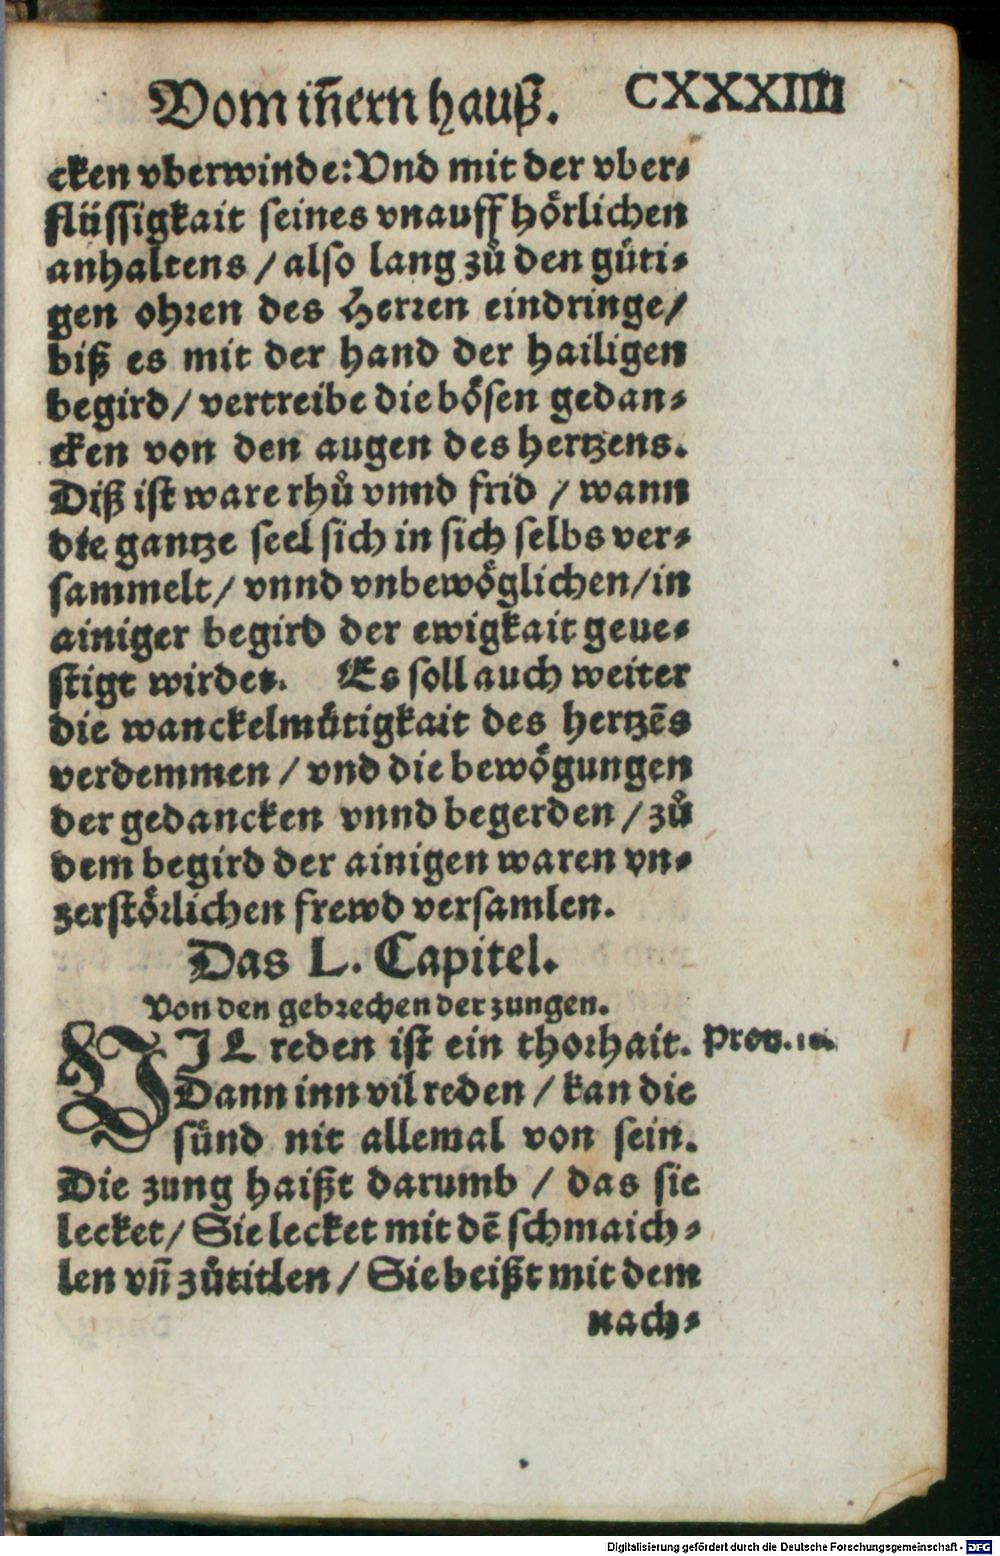 Vom iñern hauß. CXXXIIII
cken vberwinde: Vnd mit der vber⸗
flüssigkait seines vnauff hörlichen
anhaltens / also lang zů den güti⸗
gen ohren des Herren eindringe /
biß es mit der hand der hailigen
begird / vertreibe die bösen gedan⸗
cken von den augen des hertzens.
Diß ist ware rhů vnnd frid / wann
die gantze seel sich in sich selbs ver⸗
sammelt / vnnd vnbewöglichen / in
ainiger begird der ewigkait geue⸗
stigt wirdet. Es soll auch weiter
die wanckelmütigkait des hertzẽs
verdemmen / vnd die bewögungen
der gedancken vnnd begerden / zů
dem begird der ainigen waren vn⸗
zerstörlichen frewd versamlen.
Das L. Capitel.
Von den gebrechen der zungen.
VIL reden ist ein thorhait. Prov.
Dann inn vil reden / kan die
sünd nit allemal von sein.
Die zung haißt darumb / das sie
lecket / Sie lecket mit dẽ schmaich⸗
len vñ zůtitlen / Sie beißt mit dem
nach⸗
Digitalisierung gefördert durch die Deutsche Forschungsgemeinschaft - DFG